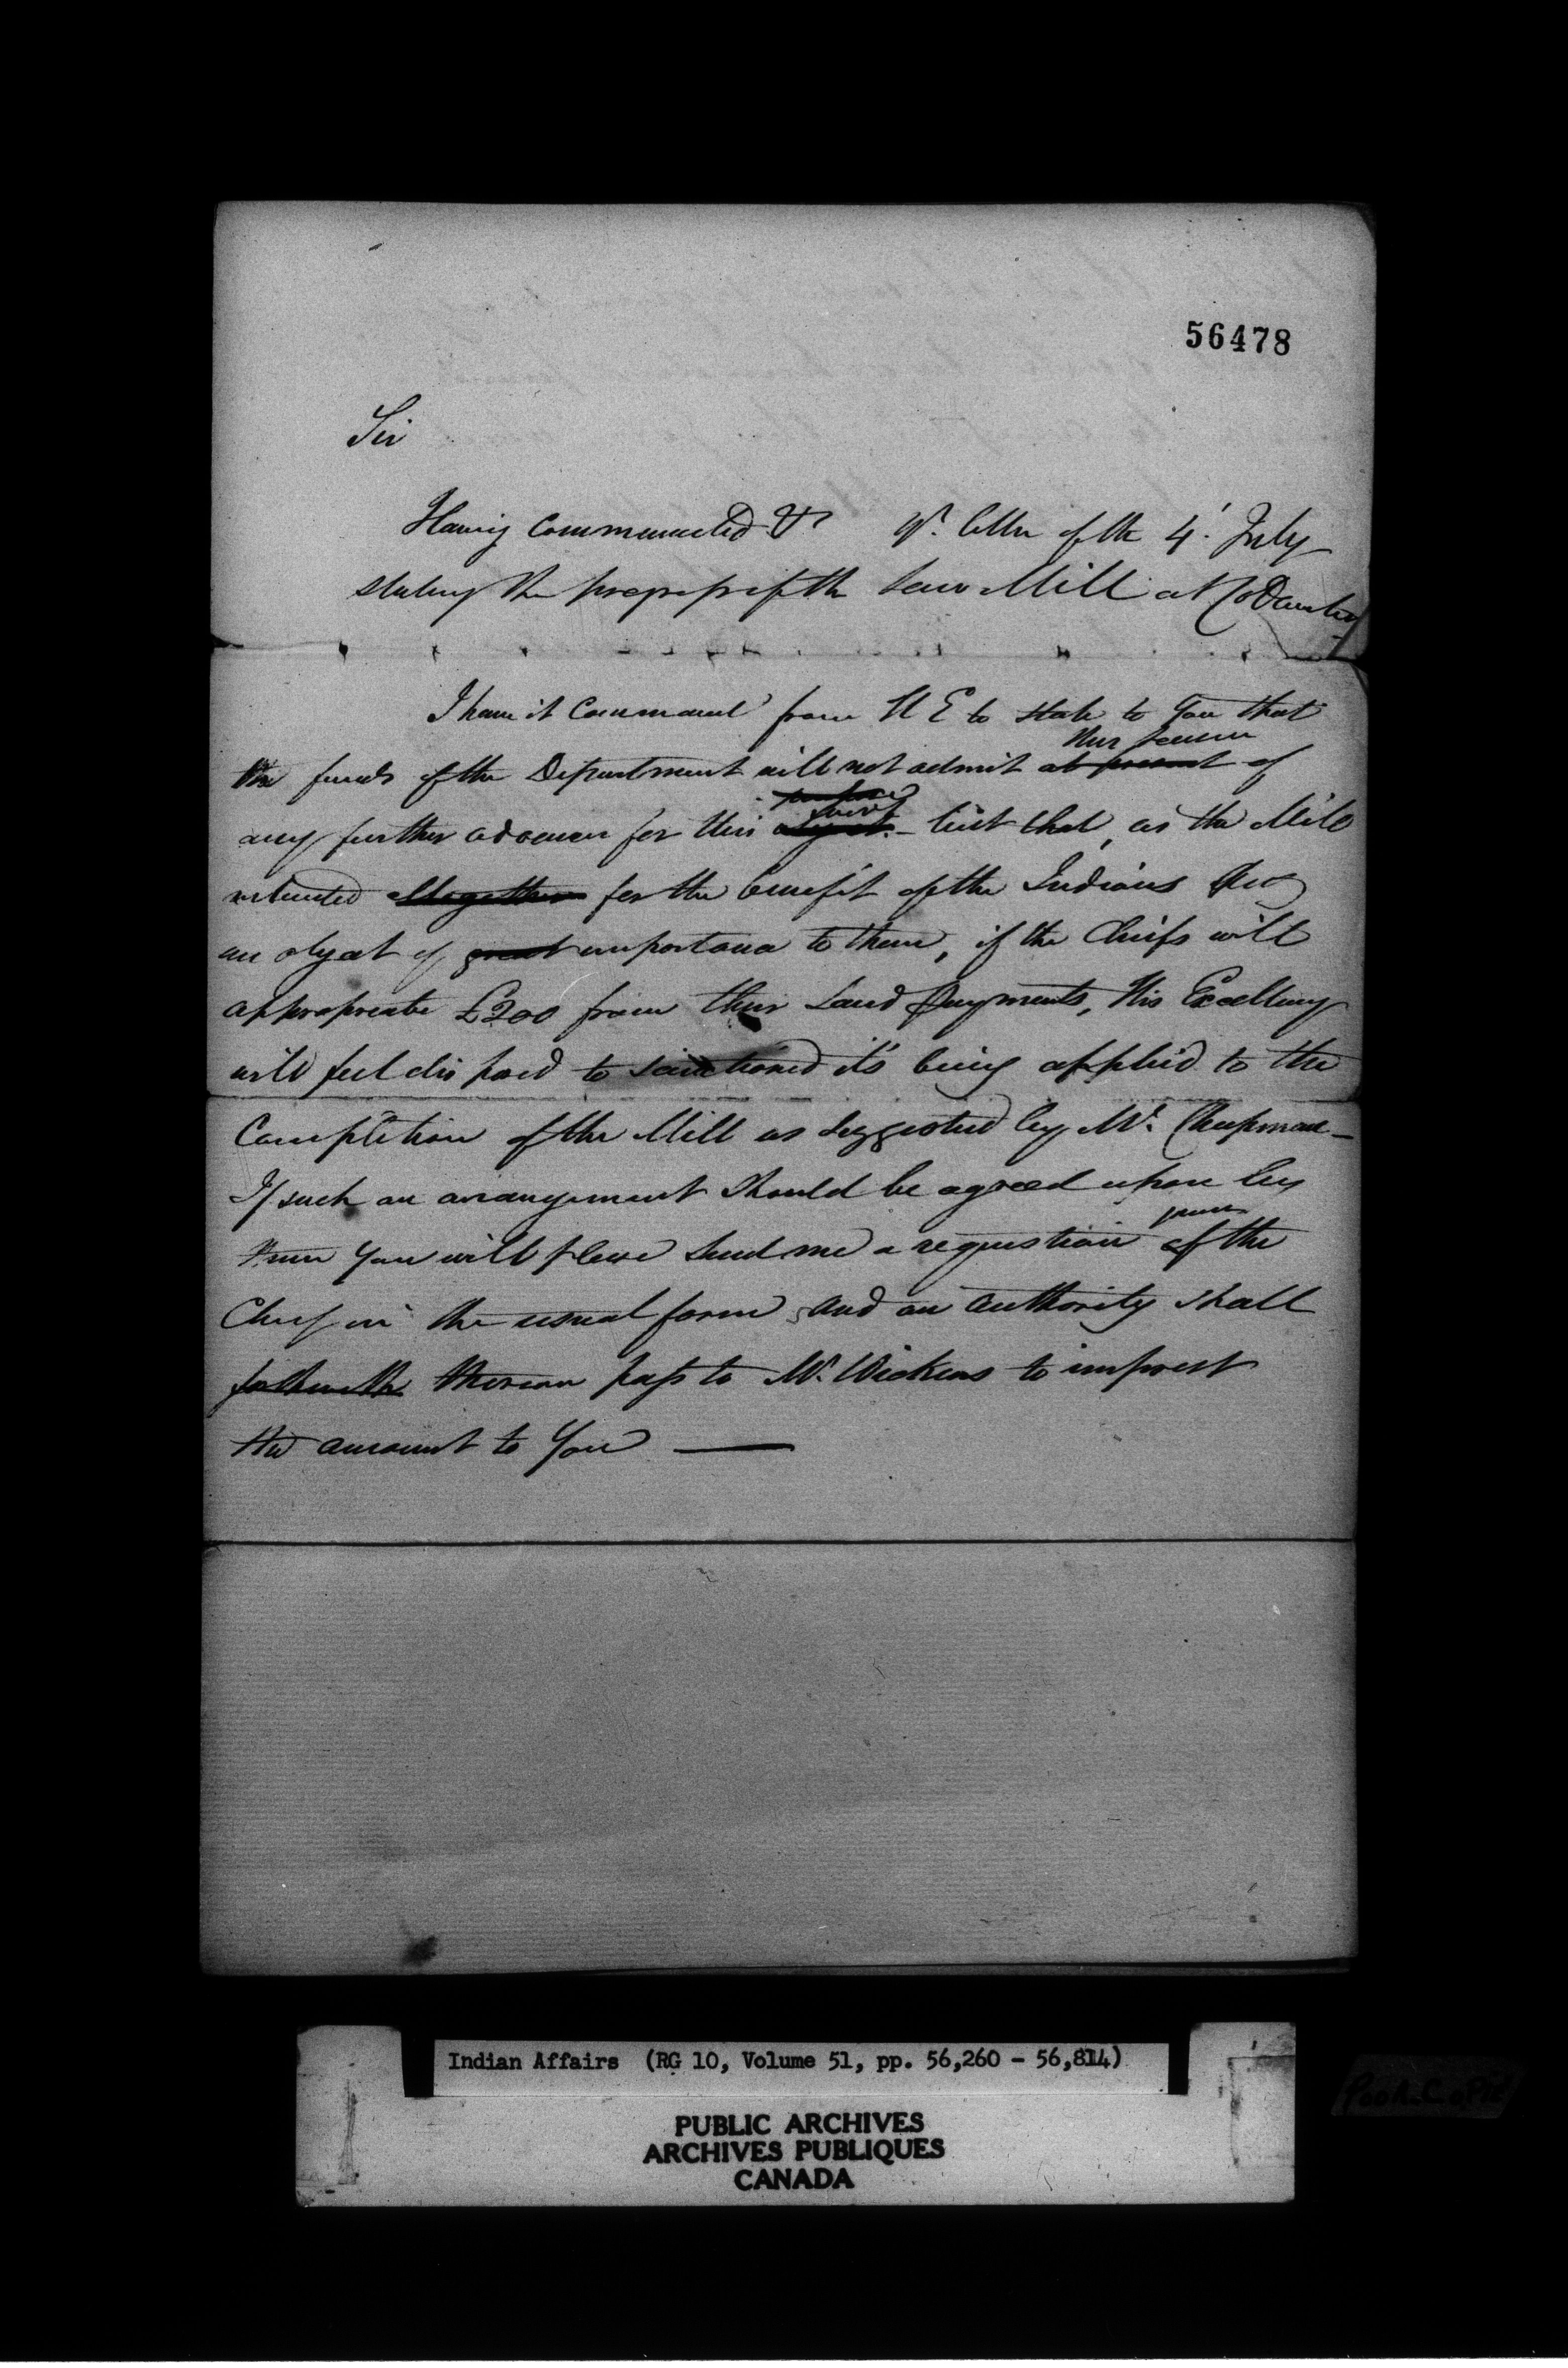 56478
Sir
Having Communicated yr. letter of the 4. July
stating the progress of the Saw Mill at
I have it Command from H E to state to You that
this season
the funds of the Department will not admit at present of
purpose
any further advance for this object. - but that, as the Mill
intended altogether for the benefit of the Indians
an object of great importance to them, if the Chiefs will
appropriate £200 from their Land Payments, His Excellency
will feel disposed to sanctioned it's being applied to the
Completion of the Mill as suggested by Mr. Chapman -
If such an arrangement should be agreed upon by
from
them You will please send me a requestion of the
Chiefs in the usual form, and an authority shall
forthwith thereon pass to Mr. Wickens to imprest
the amount to You —
Indian Affairs (RG 10, Volume 51, pp. 56,260 - 56,814)
PUBLIC ARCHIVES
ARCHIVES PUBLIQUES
CANADA